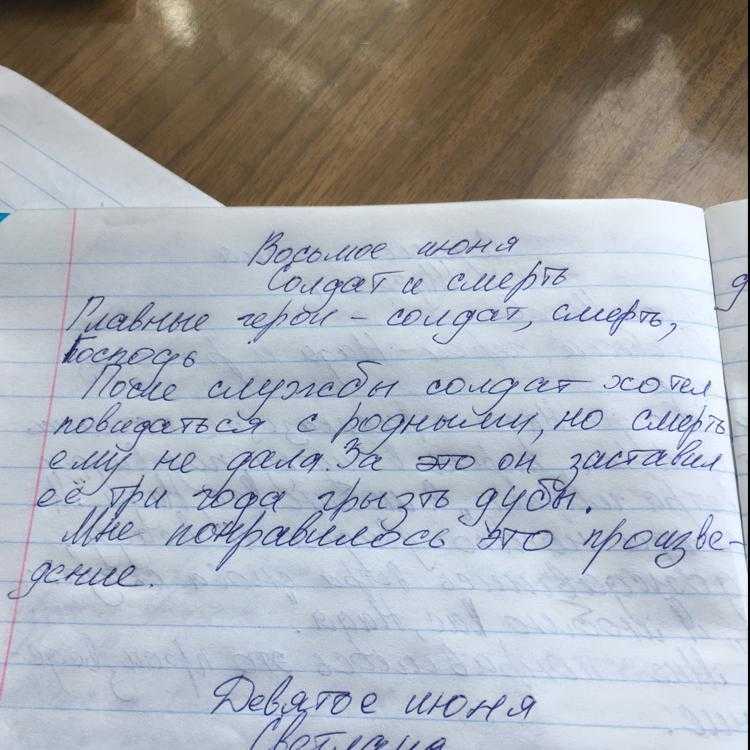 Восьмое июня
Солдат и смерть
Главные герои - солдат, смерть,
Господь
После службы солдат хотел
повидаться с родными, но смерть
ему не дала. За это он заставил
её три года грызть дубы.
Мне понравилось это произве-
дение.
Девятое июня
Светлана